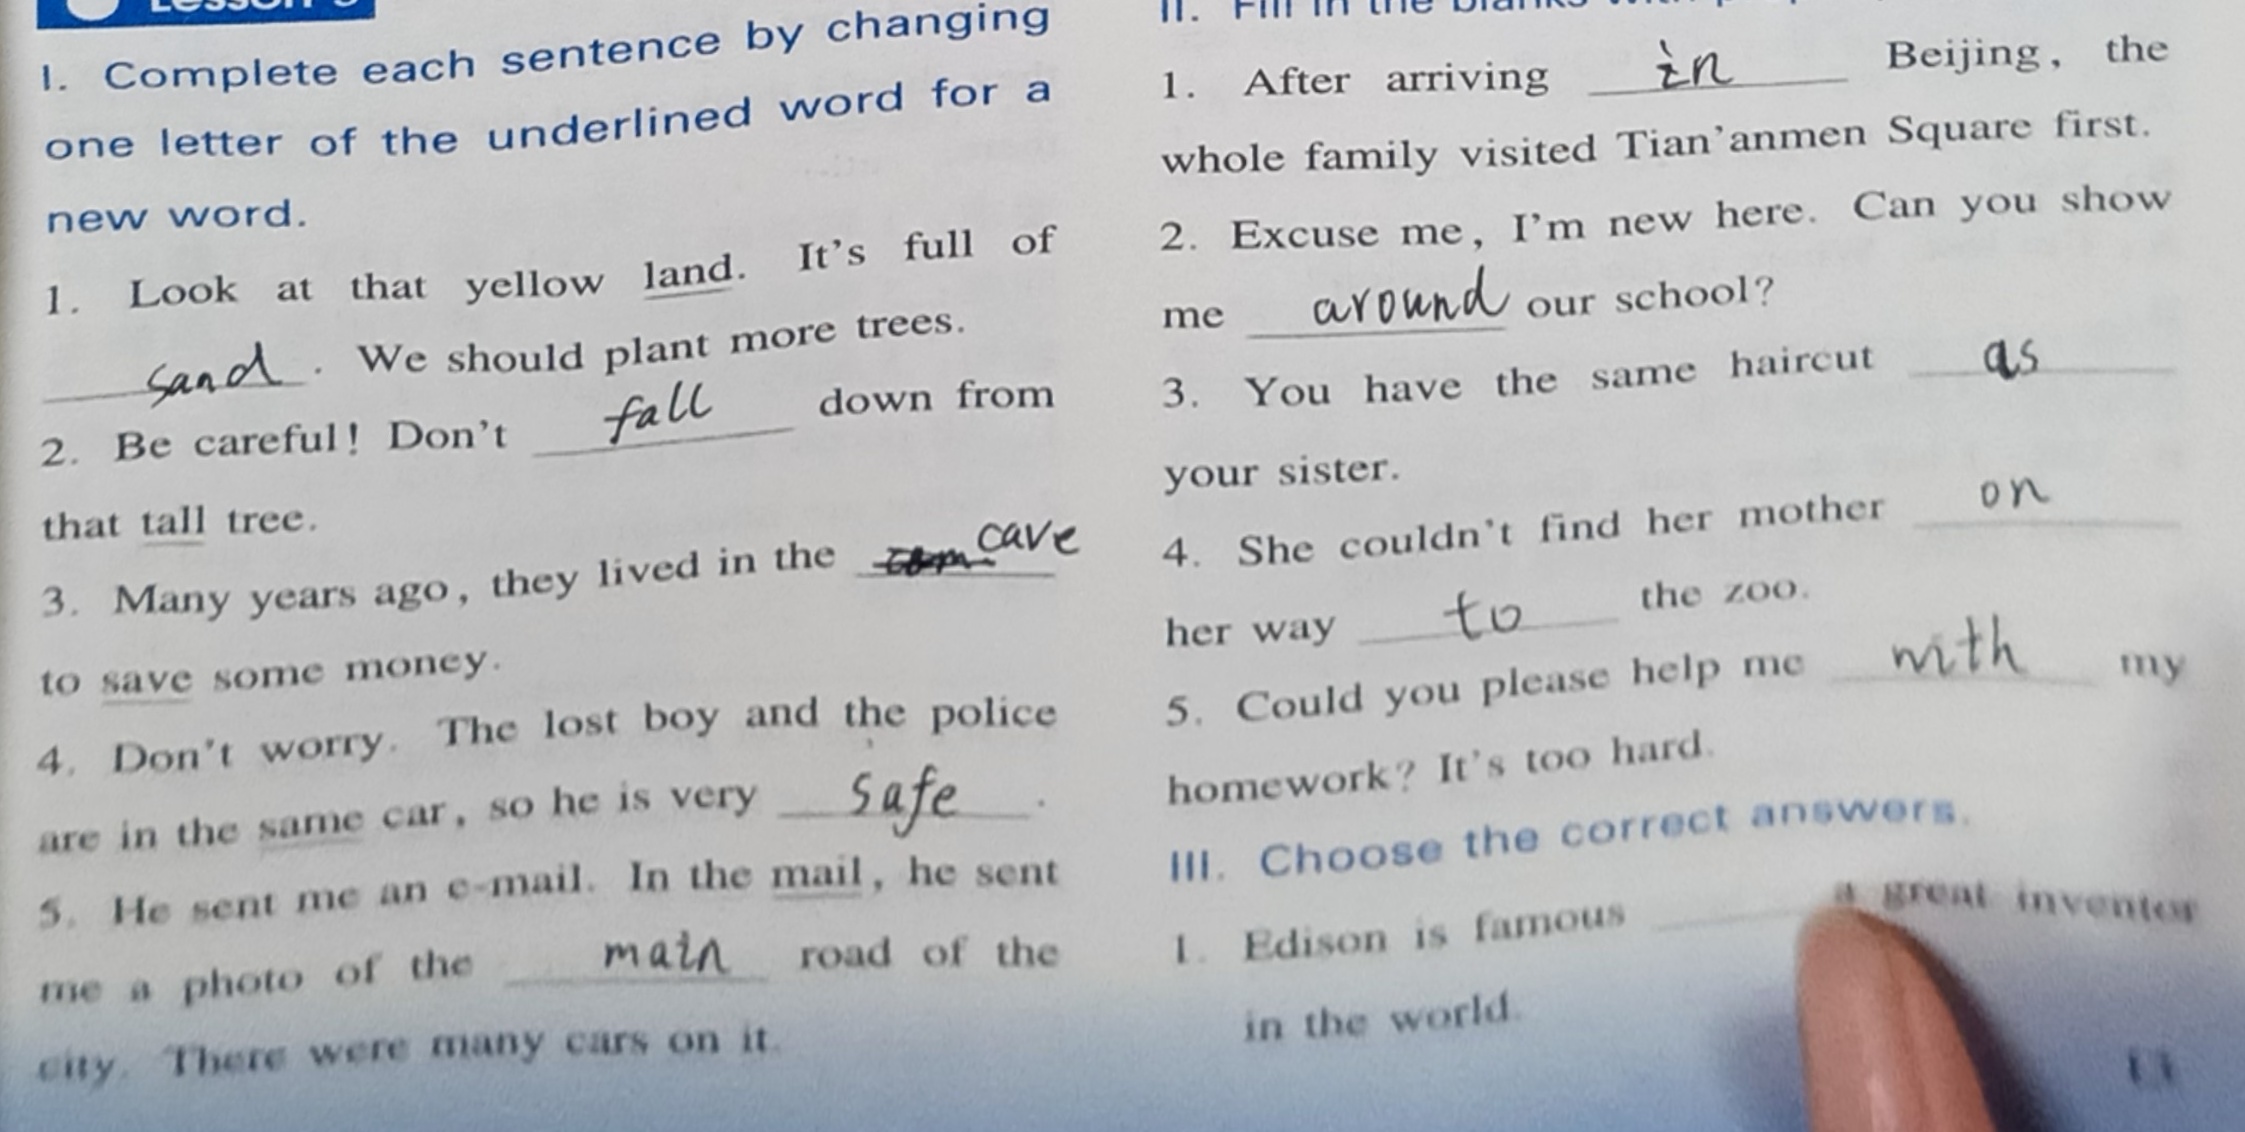 I. Complete each sentence by changing
one letter of the underlined word for a
new word.
1. Look at that yellow land. It's full of
sand. We should plant more trees.
2. Be careful! Don't fall down from
that tall tree.
3. Many years ago, they lived in the cave
to save some money.
4. Don't worry. The lost boy and the police
are in the same car, so he is very safe.
5. He sent me an e-mail. In the mail, he sent
me a photo of the main road of the
city. There were many cars on it.
II. Fill in the blanks
1. After arriving in Beijing, the
whole family visited Tian'anmen Square first.
2. Excuse me, I'm new here. Can you show
me around our school?
3. You have the same haircut as
your sister.
4. She couldn't find her mother on
her way to the zoo.
5. Could you please help me with my
homework? It's too hard.
III. Choose the correct answers.
1. Edison is famous ____ a great inventor
in the world.
11